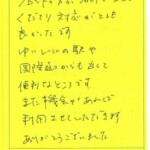 くださり対応がとても
良かったです
ゆいレールの駅や
国際通りからも近くて
便利なところです
また機会があれば
利用させていただきます
ありがとうございました